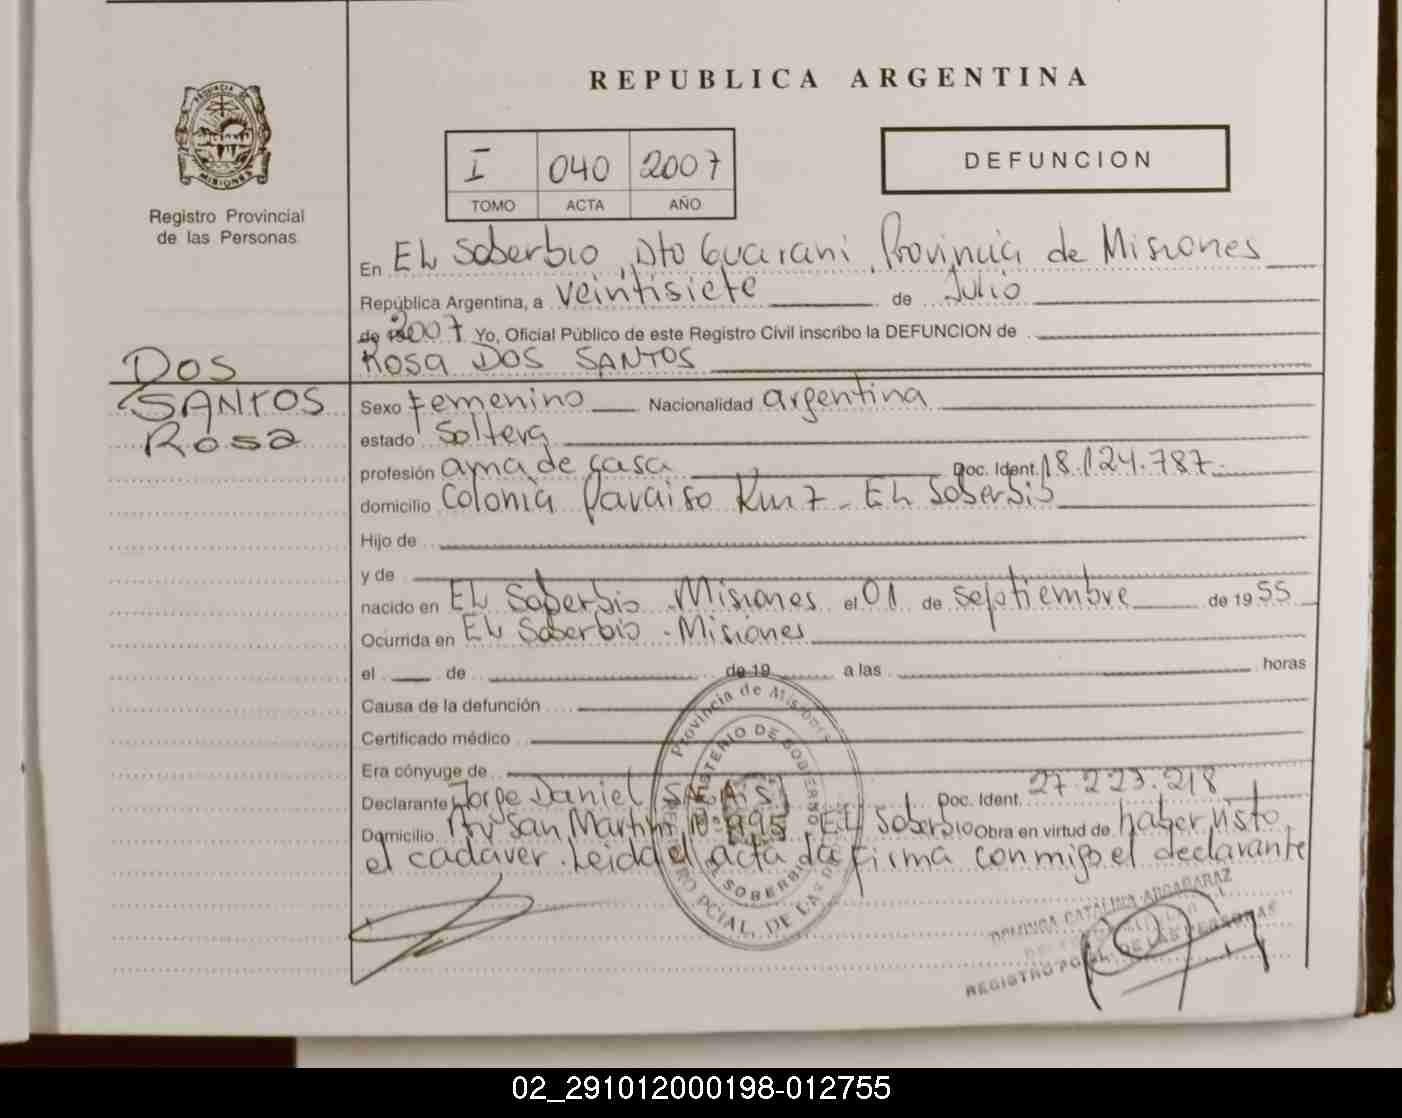 REPUBLICA ARGENTINA
PROVINCIA DE
MISIONES
Registro Provincial
de las Personas
I 040 2007
TOMO ACTA AÑO
DEFUNCION
En EL Soberbio, Dto Guarani, Provincia de Misiones
República Argentina, a veintisiete de Julio
de 2007 Yo, Oficial Público de este Registro Civil inscribo la DEFUNCION de
Rosa DOS SANTOS
DOS
SANTOS
Rosa
Sexo femenino Nacionalidad argentina
estado Soltera
profesión ama de casa Doc. Ident. 18.124.787
domicilio Colonia Paraiso Km 7 - EL Soberbio
Hijo de
y de
nacido en EL Soberbio - Misiones el 01 de septiembre de 1955
Ocurrida en EL Soberbio - Misiones
el de de 19 a las horas
Causa de la defunción
Certificado médico
Era cónyuge de
Declarante Jorge Daniel Doc. Ident. 27.223.218
Domicilio Av San Martin N° 995, EL Soberbio Obra en virtud de haber visto
el cadaver. Leida el acta la firma conmigo el declarante
Provincia de Misiones
MINISTERIO DE GOBIERNO
EL SOBERBIO
PCIAL. DE LAS
DOMINGA CATALINA ARGAÑARAZ
REGISTRO PCIAL. DE LAS PERSONAS
02_291012000198-012755